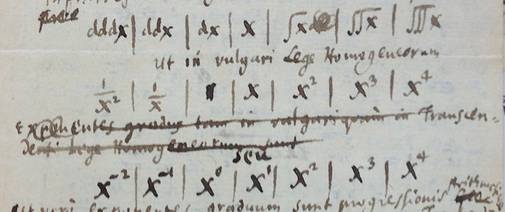 dddx | ddx | dx | x | ∫x | ∫∫x | ∫∫∫x
Ut in vulgari Lege Homogeneorum
1/x² | 1/x | 1 | x | x² | x³ | x⁴
Exponentes gradus tam in vulgari quam in Transcen-
denti Lege Homogeneorum sunt
seu
x⁻² | x⁻¹ | x⁰ | x¹ | x² | x³ | x⁴
Exponentes graduum sunt progressionis Arithmeticae